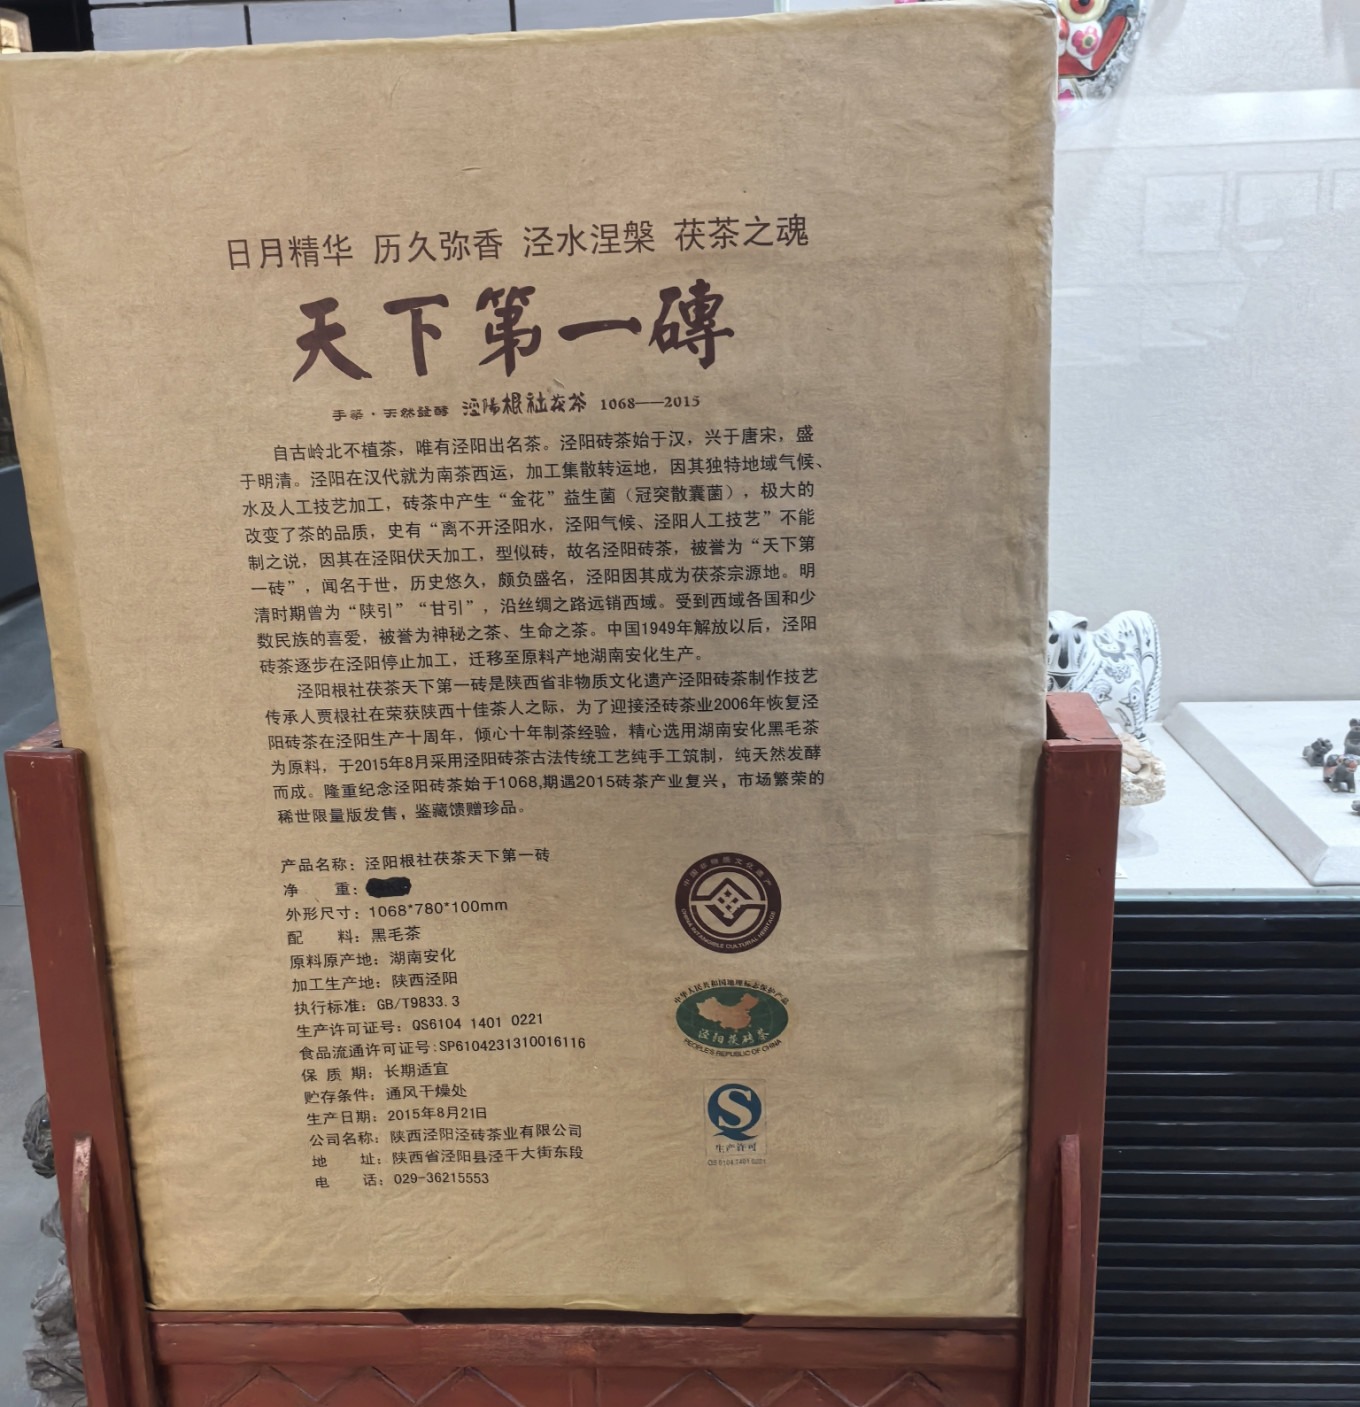 日月精华 历久弥香 泾水涅槃 茯茶之魂
天下第一磚
手筑·天然發酵 泾陽根社茯茶 1068——2015
自古岭北不植茶，唯有泾阳出名茶。泾阳砖茶始于汉，兴于唐宋，盛
于明清。泾阳在汉代就为南茶西运，加工集散转运地，因其独特地域气候、
水及人工技艺加工，砖茶中产生“金花”益生菌（冠突散囊菌），极大的
改变了茶的品质，史有“离不开泾阳水，泾阳气候、泾阳人工技艺”不能
制之说，因其在泾阳伏天加工，型似砖，故名泾阳砖茶，被誉为“天下第
一砖”，闻名于世，历史悠久，颇负盛名，泾阳因其成为茯茶宗源地。明
清时期曾为“陕引”“甘引”，沿丝绸之路远销西域。受到西域各国和少
数民族的喜爱，被誉为神秘之茶、生命之茶。中国1949年解放以后，泾阳
砖茶逐步在泾阳停止加工，迁移至原料产地湖南安化生产。
泾阳根社茯茶天下第一砖是陕西省非物质文化遗产泾阳砖茶制作技艺
传承人贾根社在荣获陕西十佳茶人之际，为了迎接泾砖茶业2006年恢复泾
阳砖茶在泾阳生产十周年，倾心十年制茶经验，精心选用湖南安化黑毛茶
为原料，于2015年8月采用泾阳砖茶古法传统工艺纯手工筑制，纯天然发酵
而成。隆重纪念泾阳砖茶始于1068,期遇2015砖茶产业复兴，市场繁荣的
稀世限量版发售，鉴藏馈赠珍品。
产品名称：泾阳根社茯茶天下第一砖
净 重：
外形尺寸：1068*780*100mm
配 料：黑毛茶
原料原产地：湖南安化
加工生产地：陕西泾阳
执行标准：GB/T9833.3
生产许可证号：QS6104 1401 0221
食品流通许可证号:SP6104231310016116
保 质 期：长期适宜
贮存条件：通风干燥处
生产日期：2015年8月21日
公司名称：陕西泾阳泾砖茶业有限公司
地 址：陕西省泾阳县泾干大街东段
电 话：029-36215553
中国非物质文化遗产
CHINA INTANGIBLE CULTURAL HERITAGE
中华人民共和国地理标志保护产品
泾阳茯砖茶
PEOPLE'S REPUBLIC OF CHINA
生产许可
QS 6104 1401 0221